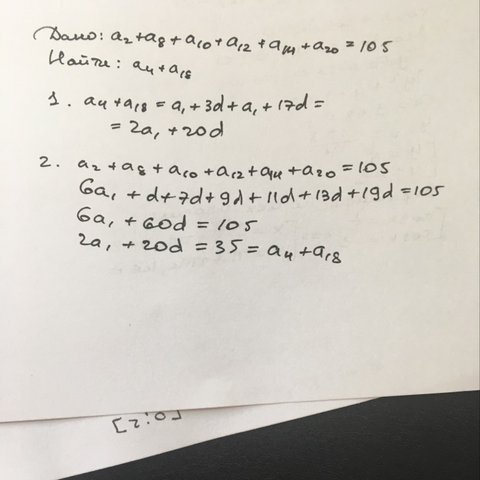 Дано: a₂+a₈+a₁₀+a₁₂+a₁₄+a₂₀=105
Найти: a₄+a₁₈
1. a₄+a₁₈=a₁+3d+a₁+17d=
=2a₁+20d
2. a₂+a₈+a₁₀+a₁₂+a₁₄+a₂₀=105
6a₁+d+7d+9d+11d+13d+19d=105
6a₁+60d=105
2a₁+20d=35=a₄+a₁₈
[0;2]